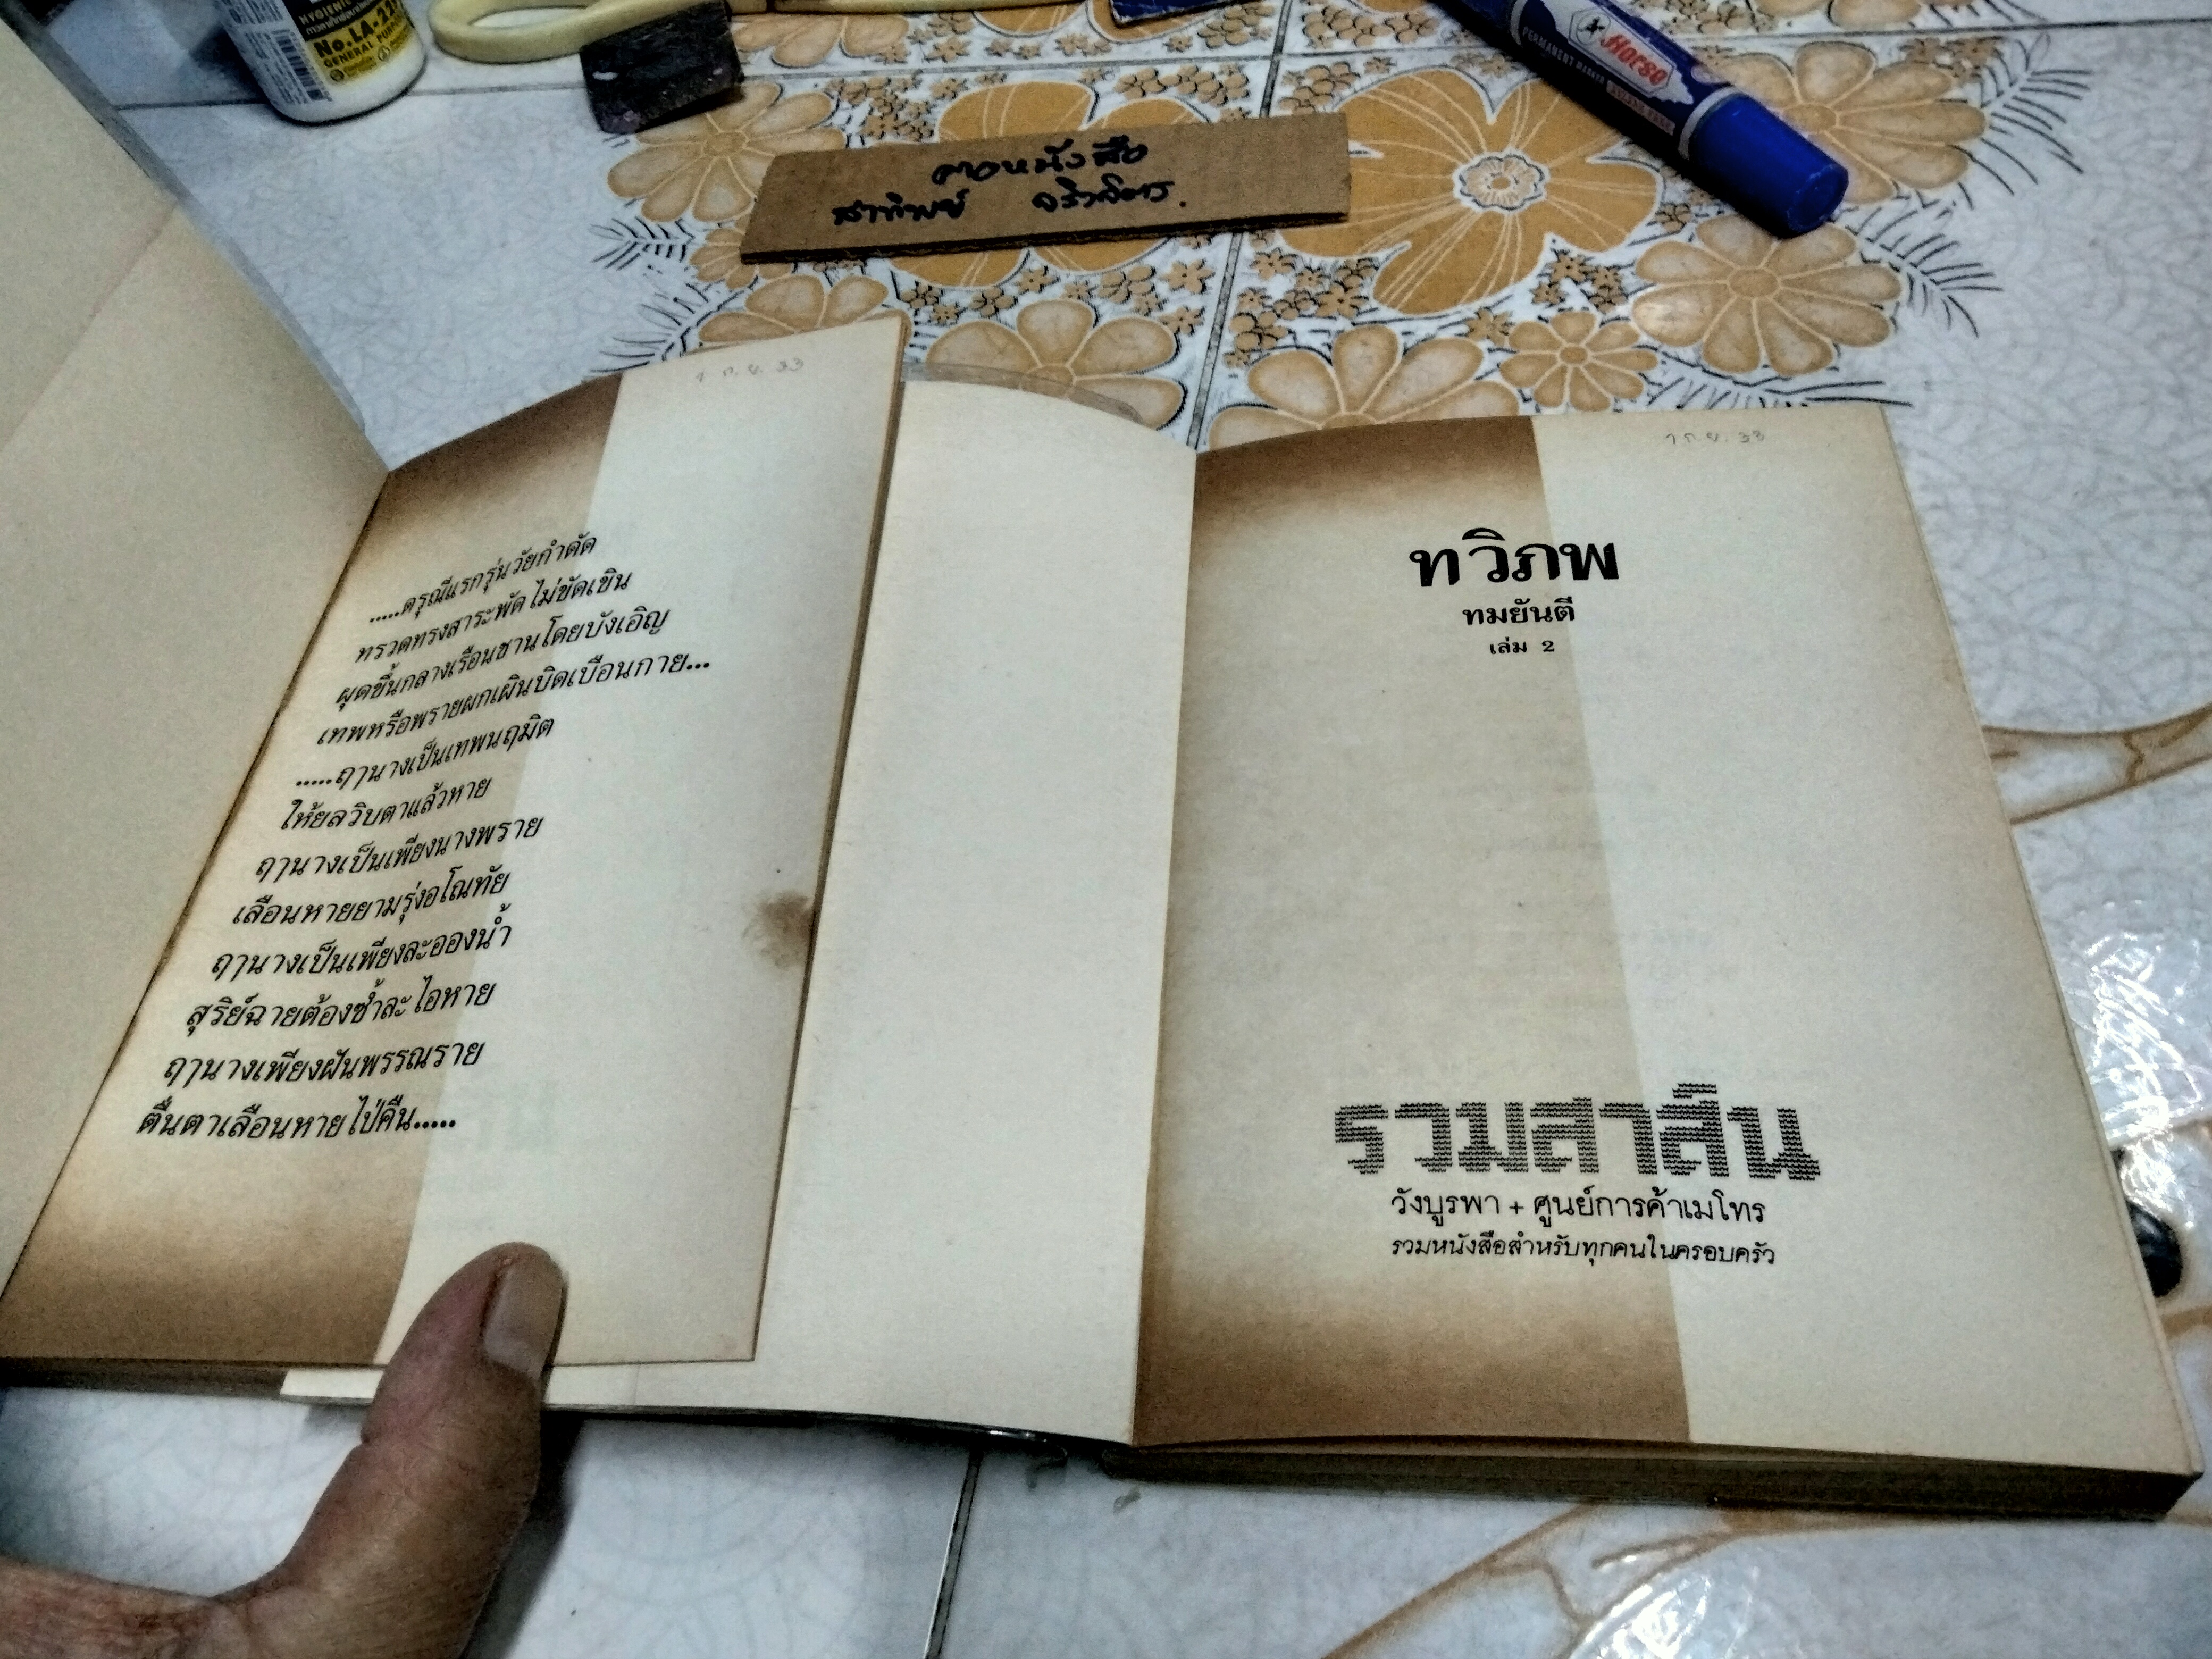 HYGIENIC
No.LA-22
GENERAL PURPOSE
Horse
PERMANENT MARKER
คาอหนังสือ
สาทิพย์ จริวจิตร.
1 ก.ย. 33
.....ดรุณีแรกรุ่นวัยกำดัด
ทรวดทรงสาระพัดไม่ขัดเขิน
ผุดขึ้นกลางเรือนชานโดยบังเอิญ
เทพหรือพรายผกเผินบิดเบือนกาย...
.....ฤานางเป็นเทพนฤมิต
ให้ยลวิบตาแล้วหาย
ฤานางเป็นเพียงนางพราย
เลือนหายยามรุ่งอโณทัย
ฤานางเป็นเพียงละอองน้ำ
สุริย์ฉายต้องซ้ำละไอหาย
ฤานางเพียงฝันพรรณราย
ตื่นตาเลือนหายไป่คืน.....
1 ก.ย. 33
ทวิภพ
ทมยันตี
เล่ม 2
รวมสาส์น
วังบูรพา + ศูนย์การค้าเมโทร
รวมหนังสือสำหรับทุกคนในครอบครัว